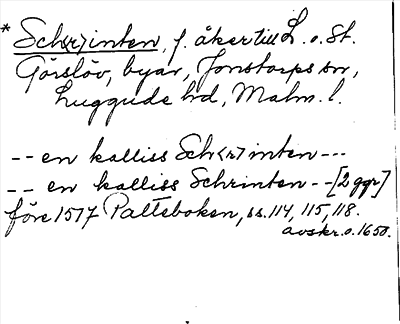 * Sch<r>inten, f. åker till L. o. St.
Görslöv, byar, Jonstorps sn,
Luggude hd, Malm. l.
-- en kalliss Sch<r>inten ---
-- en kalliss Schrinten --[2 ggr]
före 1517 Palteboken, ss. 114, 115, 118.
avskr. o. 1650.